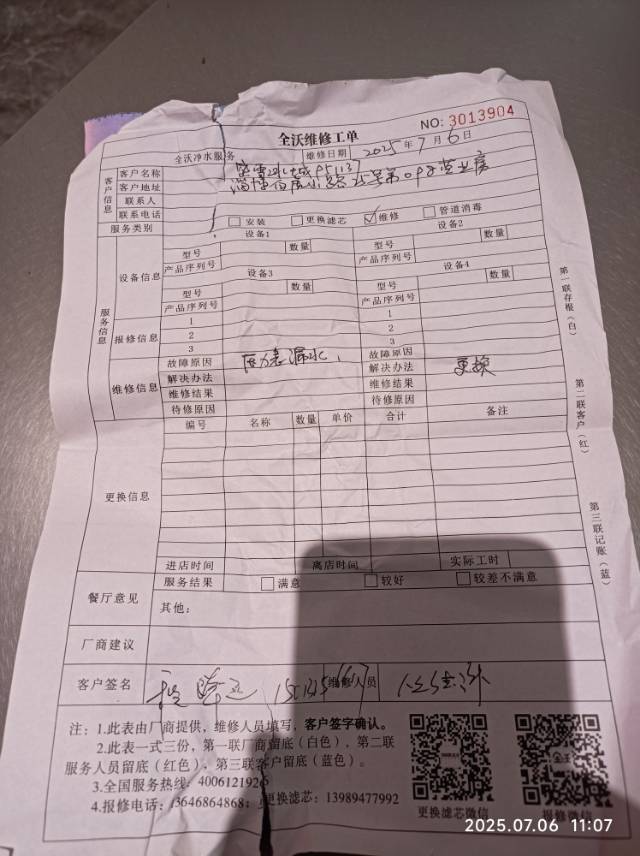 全沃维修工单
NO: 3013904
全沃净水服务 维修日期 2025年7月6日
客户信息
客户名称
客户地址
联系人
联系电话
服务类别 安装 更换滤芯 维修 管道消毒
服务信息
设备信息
设备1 设备2
型号 数量 型号 数量
产品序列号 产品序列号
设备3 设备4
型号 数量 型号 数量
产品序列号 产品序列号
报修信息
1 1
2 2
3 3
维修信息
故障原因 压力表漏水 故障原因
解决办法 解决办法 更换
维修结果 维修结果
待修原因 待修原因
更换信息
编号 名称 数量 单价 合计 备注
进店时间 离店时间 实际工时
餐厅意见
服务结果 满意 较好 较差不满意
其他:
厂商建议
客户签名 维修人员
注: 1.此表由厂商提供，维修人员填写，客户签字确认。
2.此表一式三份，第一联厂商留底（白色），第二联
服务人员留底（红色），第三联客户留底（蓝色）。
3.全国服务热线: 4006121926
4.报修电话: 13646864868; 更换滤芯: 13989477992
更换滤芯微信 报修微信
第一联存根（白）
第二联客户（红）
第三联记账（蓝）
2025.07.06 11:07